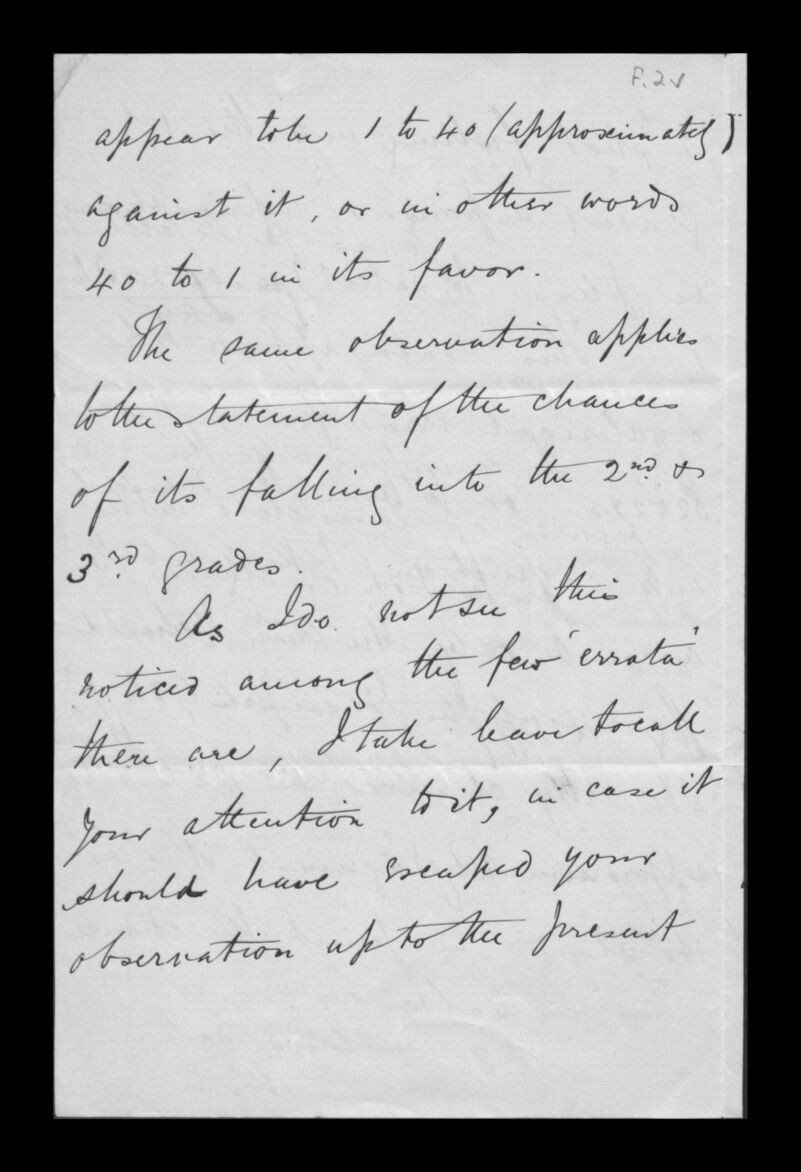 F.2v
appear to be 1 to 40 (approximately)
against it, or in other words
40 to 1 in its favor.
The same observation applies
to the statement of the chances
of its falling into the 2nd &
3rd grades.
As I do not see this
noticed among the few 'errata'
there are, I take leave to call
your attention to it, in case it
should have escaped your
observation up to the present